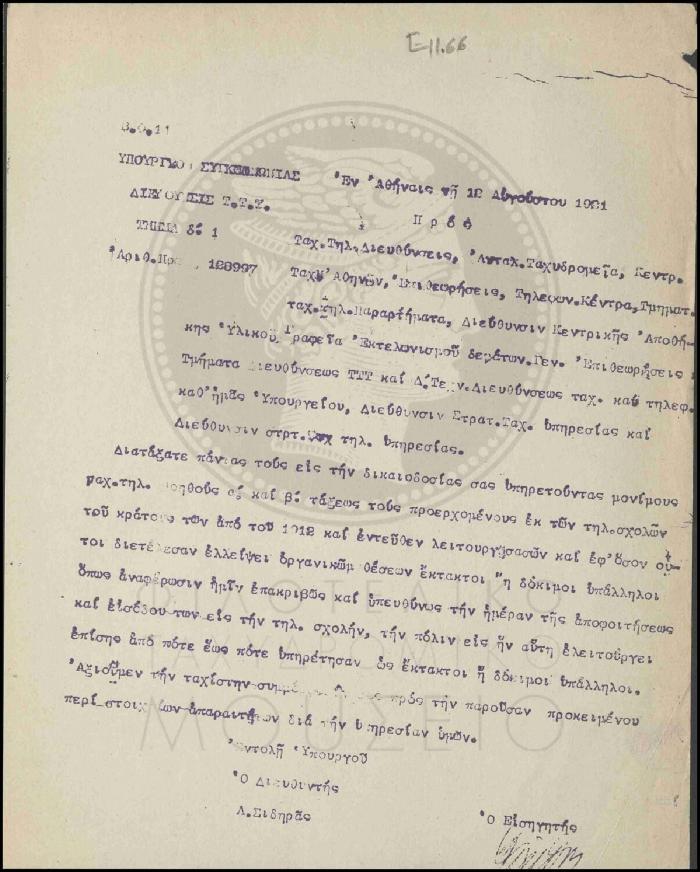 Ε-11.66
ΥΠΟΥΡΓΕΙΟ ΣΥΓΚΟΙΝΩΝΙΑΣ
Ἐν Ἀθήναις τῇ 12 Αὐγούστου 1921
ΔΙΕΥΘΥΝΣΙΣ Τ.Τ.Τ.
Πρὸς
ΤΜΗΜΑ 1
Ἀριθ.Πρω. 128997
Ταχ.Τηλ.Διευθύνσεις, Ἀνταλ.Ταχυδρομεῖα, Κεντρ.
Ταχ Ἀθηνῶν, Ἐπιθεωρήσεις, Τηλεφων.Κέντρα, Τμηματ.
ταχ.τηλ.Παραρτήματα, Διεύθυνσιν Κεντρικῆς Ἀποθή-
κης Ὑλικοῦ Γραφεῖα Ἐκτελωνισμοῦ δεμάτων.Γεν. Ἐπιθεωρήσεις
Τμήματα Διευθύνσεως ΤΤΤ καὶ Δ.Τεχν.Διευθύνσεως ταχ. καὶ τηλεφ.
καθ'ἡμᾶς Ὑπουργείου, Διεύθυνσιν Στρατ.Ταχ. ὑπηρεσίας καὶ
Διεύθυνσιν στρτ. τηλ. ὑπηρεσίας.
Διατάξατε πάντας τοὺς εἰς τὴν δικαιοδοσίας σας ὑπηρετοῦντας μονίμους
ταχ.τηλ. βοηθοὺς α΄ καὶ β΄ τάξεως τοὺς προερχομένους ἐκ τῶν τηλ.σχολῶν
τοῦ κράτους τῶν ἀπὸ τοῦ 1912 καὶ ἐντεῦθεν λειτουργησασῶν καὶ ἐφ'ὅσον οὗ-
τοι διετέλεσαν ἐλλείψει ὀργανικῶν θέσεων ἔκτακτοι ἢ δόκιμοι ὑπάλληλοι
ὅπως ἀναφέρωσιν ἡμῖν ἐπακριβῶς καὶ ὑπευθύνως τὴν ἡμέραν τῆς ἀποφοιτήσεως
καὶ εἰσόδου των εἰς τὴν τηλ. σχολήν, τὴν πόλιν εἰς ἣν αὕτη ἐλειτούργει
ἐπίσης ἀπὸ πότε ἕως πότε ὑπηρέτησαν ὡς ἔκτακτοι ἢ δόκιμοι ὑπάλληλοι.
Ἀξιοῦμεν τὴν ταχίστην πρὸς τὴν παροῦσαν προκειμένου
περὶ στοιχείων ἀπαραιτήτων διὰ τὴν ὑπηρεσίαν ὑμῶν.
Ἐντολῇ Ὑπουργοῦ
Ὁ Διευθυντής
Λ.Σιδηρᾶς
Ὁ Εἰσηγητής
ΦΙΛΟΤΕΛΙΚΟ
ΜΟΥΣΕΙΟ